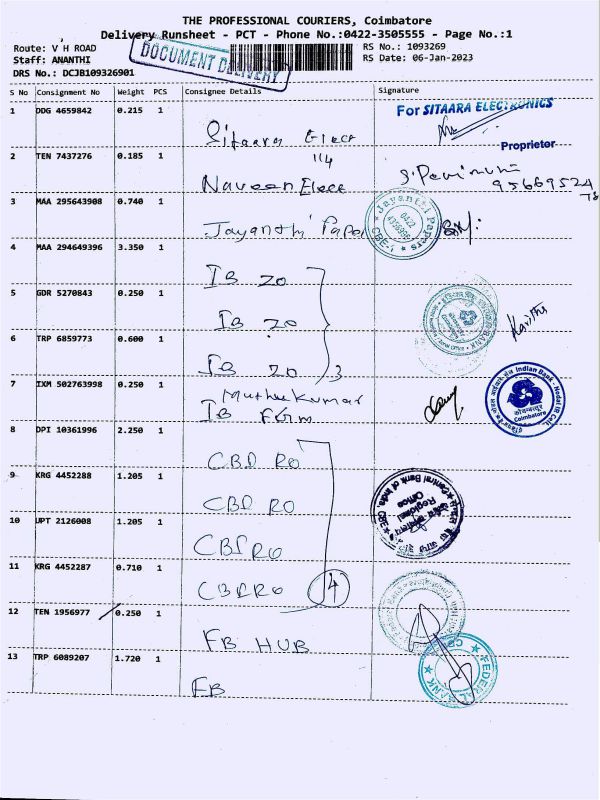 THE PROFESSIONAL COURIERS, Coimbatore
Delivery Runsheet - PCT - Phone No.:0422-3505555 - Page No.:1
Route: V H ROAD
RS No.: 1093269
Staff: ANANTHI
RS Date: 06-Jan-2023
DRS No.: DCJB109326901
DOCUMENT DELIVERY
S No Consignment No Weight PCS Consignee Details Signature
1 DDG 4659842 0.215 1 Sitaara Elect
For SITAARA ELECTRONICS
Proprietor
114
2 TEN 7437276 0.185 1 Naveen Elece
3 MAA 295643908 0.740 1 Jayanthi Paper
Jayanthi Papers
0422
CBE-1
4 MAA 294649396 3.350 1 IB ZO
5 GDR 5270843 0.250 1 IB ZO
Kavitha
6 TRP 6859773 0.600 1 IB ZO 3
7 IXM 502763998 0.250 1 Muthukumar
IB
Indian Bank
कोयम्बत्तूर
Coimbatore
8 DPI 10361996 2.250 1 CBI RO
9 KRG 4452288 1.205 1 CBI RO
Central Bank of India, CBE
Regional Office
10 UPT 2126008 1.205 1 CBI RO
11 KRG 4452287 0.710 1 CBI RO 4
12 TEN 1956977 0.250 1 FB HUB
13 TRP 6089207 1.720 1 FB
FEDERAL BANK